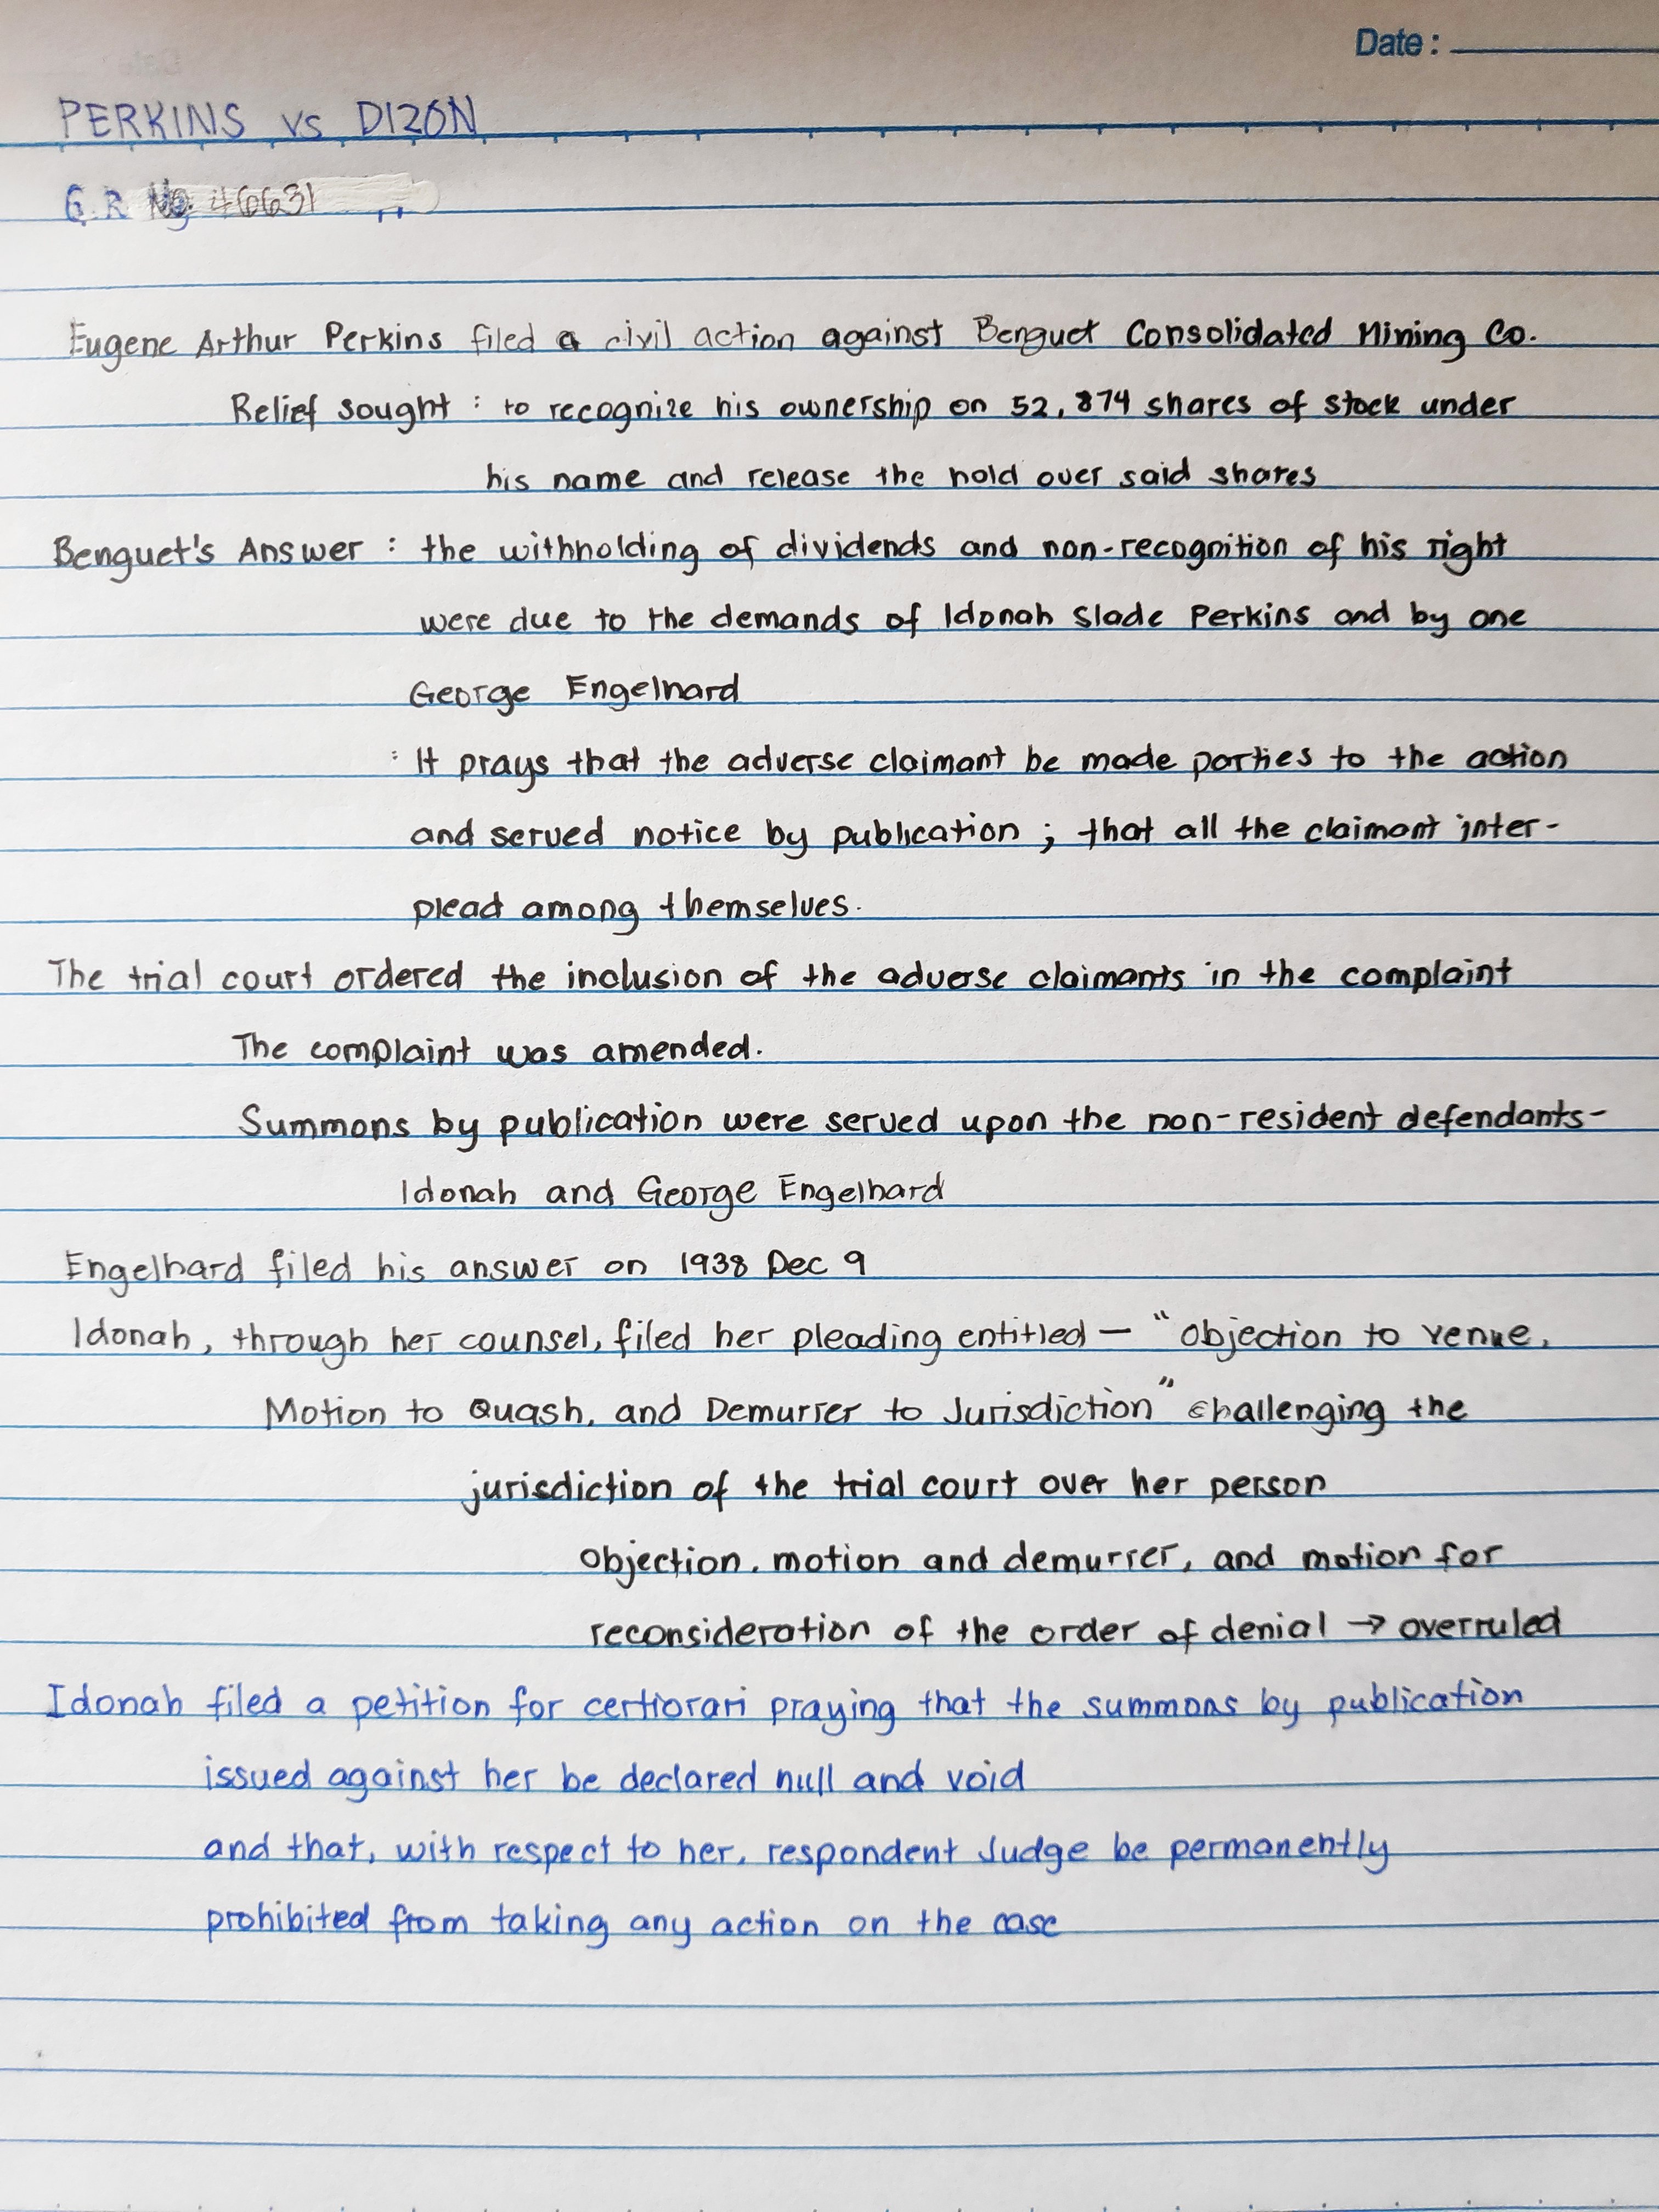 Date :
PERKINS vs DIZON
G.R No. 46631
Eugene Arthur Perkins filed a civil action against Benguet Consolidated Mining Co.
Relief sought : to recognize his ownership on 52,874 shares of stock under
his name and release the hold over said shares
Benguet's Answer : the withholding of dividends and non-recognition of his right
were due to the demands of Idonah Slade Perkins and by one
George Engelhard
: It prays that the adverse claimant be made parties to the action
and served notice by publication ; that all the claimant inter-
plead among themselves.
The trial court ordered the inclusion of the adverse claimants in the complaint
The complaint was amended.
Summons by publication were served upon the non-resident defendants-
Idonah and George Engelhard
Engelhard filed his answer on 1938 Dec 9
Idonah, through her counsel, filed her pleading entitled — "Objection to venue,
Motion to Quash, and Demurrer to Jurisdiction" challenging the
jurisdiction of the trial court over her person
objection, motion and demurrer, and motion for
reconsideration of the order of denial → overruled
Idonah filed a petition for certiorari praying that the summons by publication
issued against her be declared null and void
and that, with respect to her, respondent Judge be permanently
prohibited from taking any action on the case